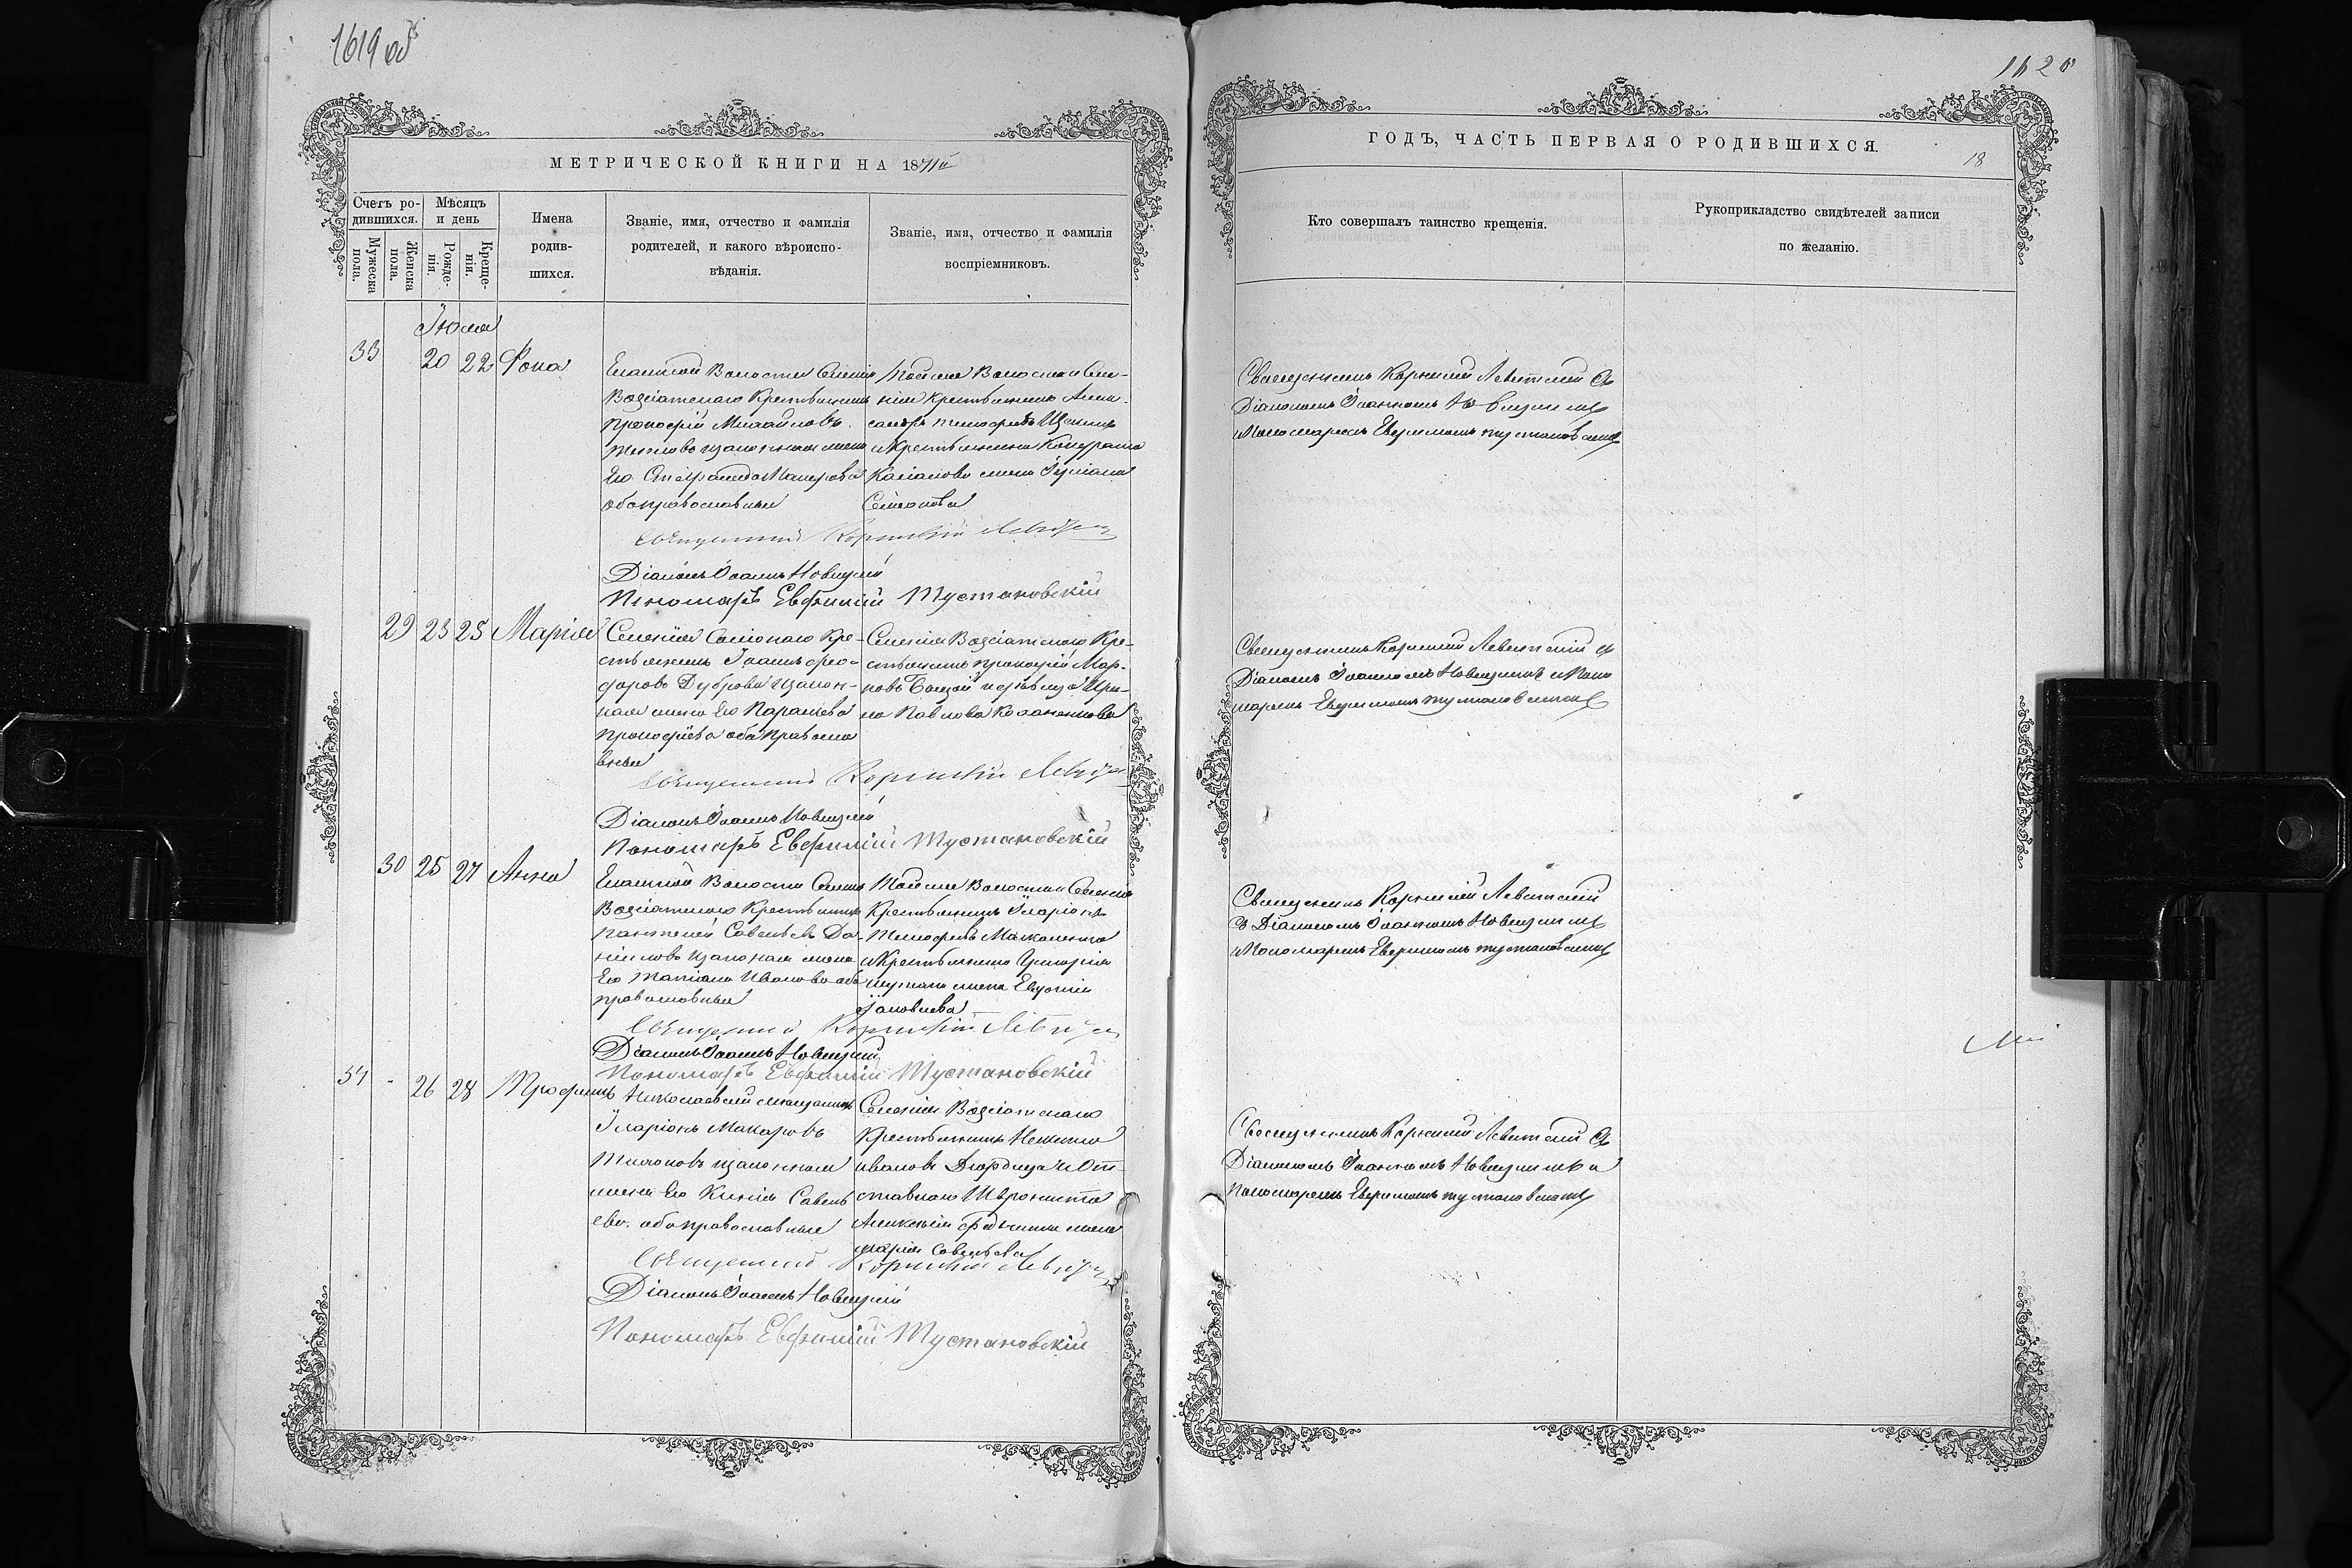 1619 об
МЕТРИЧЕСКОЙ КНИГИ НА 1871й
Счетъ ро-
дившихся.
Мѣсяцъ
и день
Мужеска
пола.
Женска
пола.
Рожде-
нія.
Креще-
нія.
Имена
родив-
шихся.
Званіе, имя, отчество и фамилія
родителей, и какого вѣроиспо-
вѣданія.
Званіе, имя, отчество и фамилія
воспріемниковъ.
Іюля
33 20 22 Фока
Еланецкой Волости Селенія
Возсіатскаго Крестьянинъ
Прокофій Михайловъ
законная жена
Его Макарова
оба православные
Тойже Волости и Селе-
нія Крестьянинъ
Тимофеевъ
и Крестьянина Кондрата
жена Іуліана
Семенова
Священникъ Корнилій Левитскій
Діаконъ Іоаннъ Новицкій
Пономарь Евфимій Тустановскій
29 23 25 Марія
Селенія Кре-
стьянинъ Іоаннъ Фео-
доровъ Дуброва и закон-
ная жена Его Параскева
Прокофіева оба Правосла
вные
Селенія Возсіатскаго Кре-
стьянинъ Прокофій Мар-
ковъ и дѣвица Ири-
на Павлова
Священникъ Корнилій Левитскій
Діаконъ Іоаннъ Новицкій
Пономарь Евфимій Тустановскій
30 25 27 Анна
Еланецкой Волости Селенія
Возсіатскаго Крестьянинъ
Пантелей Савельевъ Да-
ниловъ и законная жена
Его Татіана Иванова оба
православные
Тойже Волости и Селенія
Крестьянинъ Іларіонъ
Тимофеевъ
и Крестьянина Григорія
жена Евдокія
Іаковлева
Священникъ Корнилій Левитскій
Діаконъ Іоаннъ Новицкій
Пономарь Евфимій Тустановскій
34 - 26 28 Трофимъ
Николаевскій мещанинъ
Іларіонъ Макаровъ
и законная
жена Его Савель
ева оба православные
Селенія Возсіатскаго
Крестьянинъ
Ивановъ и От-
ставнаго
Алексѣя жена
Марія Савельева
Священникъ Корнилій Левитскій
Діаконъ Іоаннъ Новицкій
Пономарь Евфимій Тустановскій
1620
ГОДЪ, ЧАСТЬ ПЕРВАЯ О РОДИВШИХСЯ.
18
Кто совершалъ таинство крещенія.
Рукоприкладство свидѣтелей записи
по желанію.
Священникъ Корнилій Левитскій съ
Діакономъ Іоанномъ Новицкимъ
и Пономаремъ Евфиміемъ Тустановскимъ
Священникъ Корнилій Левитскій съ
Діакономъ Іоанномъ Новицкимъ и Поно
маремъ Евфиміемъ Тустановскимъ
Священникъ Корнилій Левитскій
съ Діакономъ Іоанномъ Новицкимъ
и Пономаремъ Евфиміемъ Тустановскимъ
Священникъ Корнилій Левитскій съ
Діакономъ Іоанномъ Новицкимъ и
Пономаремъ Евфиміемъ Тустановскимъ